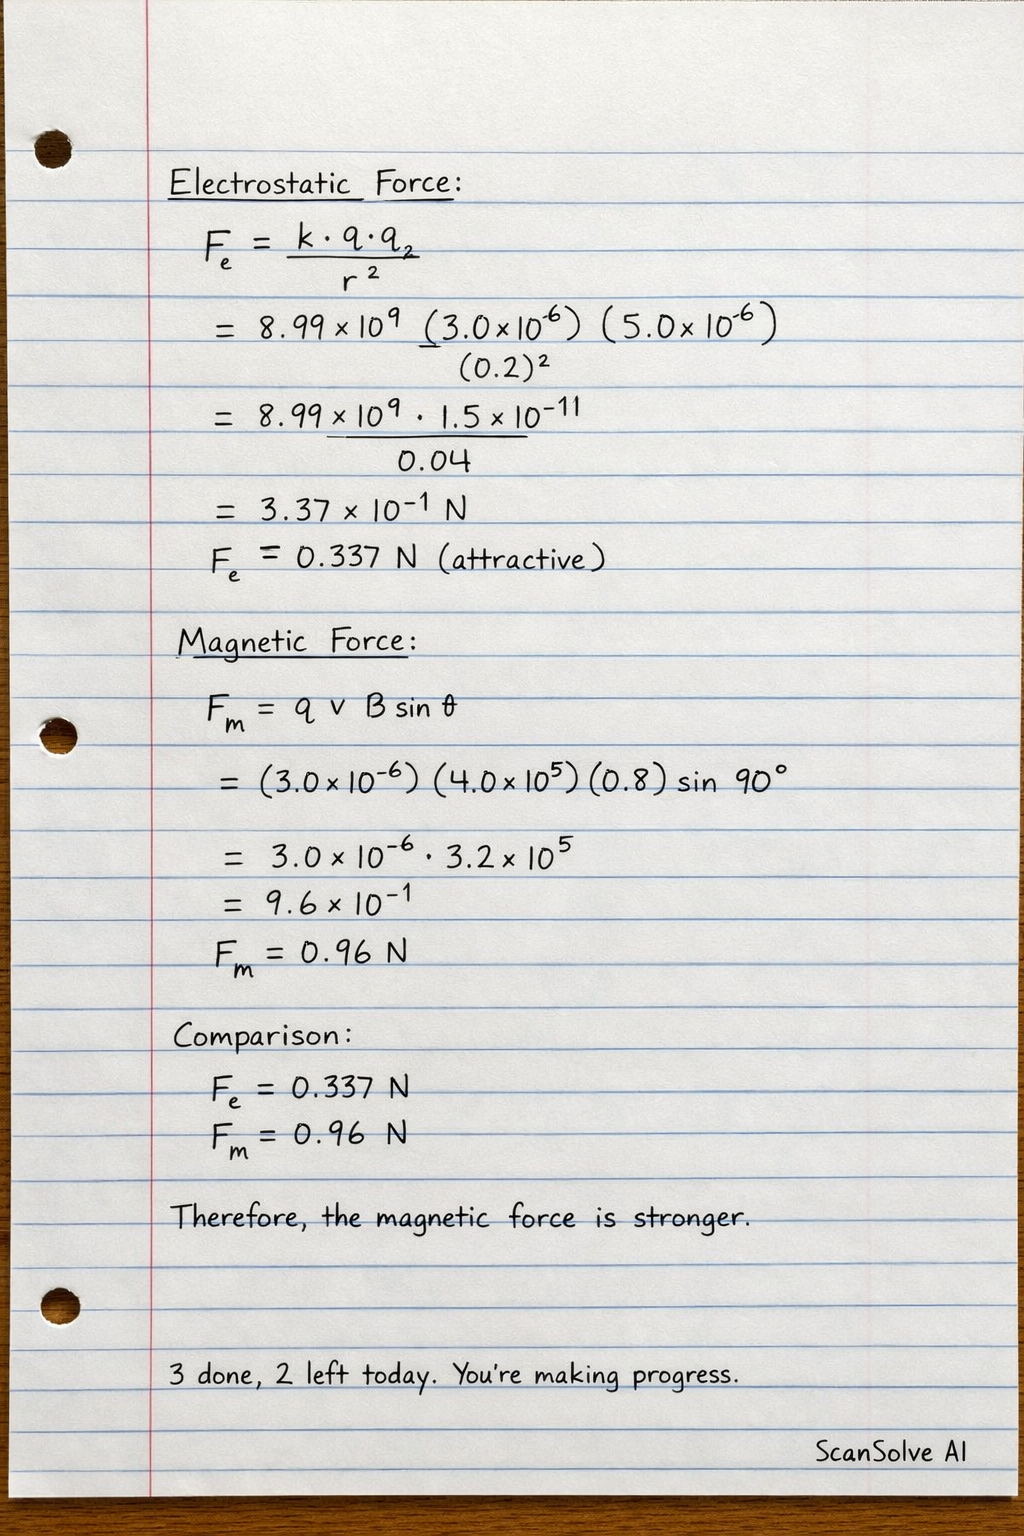 Electrostatic Force:
Fₑ = k · q · q₂
r²
= 8.99 × 10⁹ (3.0×10⁻⁶) (5.0×10⁻⁶)
(0.2)²
= 8.99 × 10⁹ · 1.5 × 10⁻¹¹
0.04
= 3.37 × 10⁻¹ N
Fₑ = 0.337 N (attractive)
Magnetic Force:
Fₘ = q v B sin θ
= (3.0×10⁻⁶) (4.0×10⁵) (0.8) sin 90°
= 3.0 × 10⁻⁶ · 3.2 × 10⁵
= 9.6 × 10⁻¹
Fₘ = 0.96 N
Comparison:
Fₑ = 0.337 N
Fₘ = 0.96 N
Therefore, the magnetic force is stronger.
3 done, 2 left today. You're making progress.
ScanSolve AI